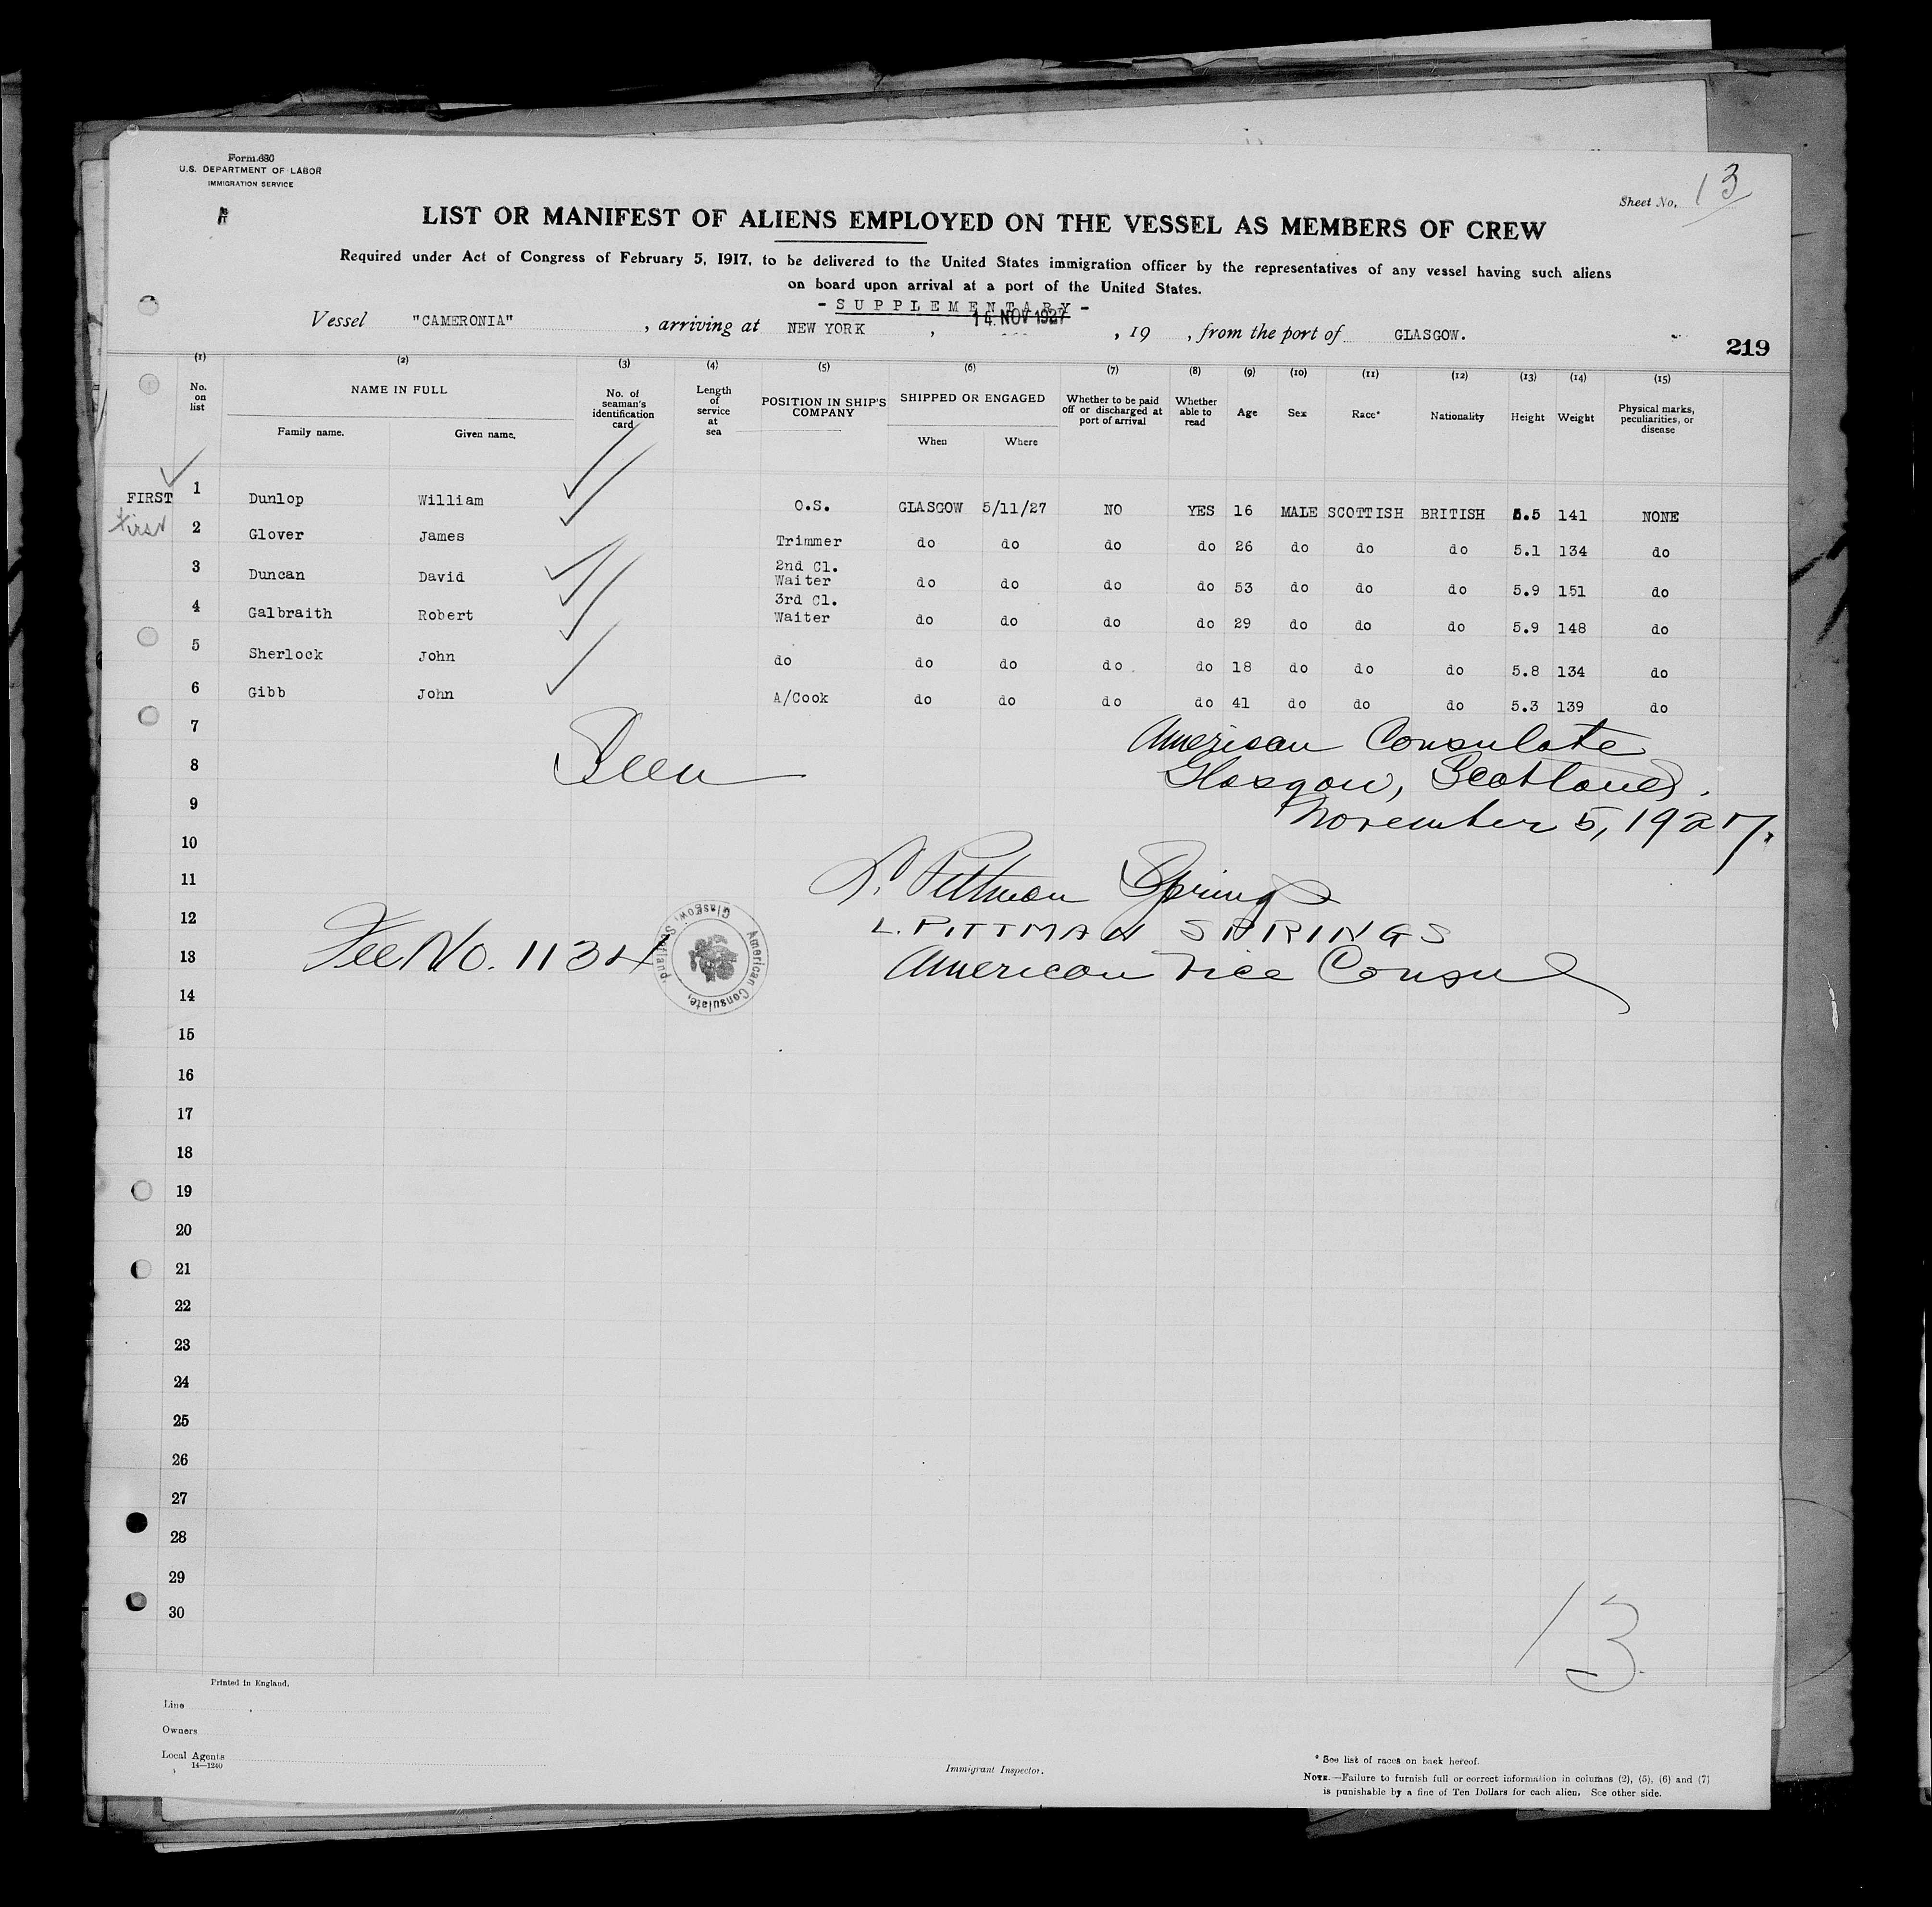 Form 680
U.S. DEPARTMENT OF LABOR
IMMIGRATION SERVICE
Sheet No. 13
LIST OR MANIFEST OF ALIENS EMPLOYED ON THE VESSEL AS MEMBERS OF CREW
Required under Act of Congress of February 5, 1917, to be delivered to the United States immigration officer by the representatives of any vessel having such aliens
on board upon arrival at a port of the United States.
- SUPPLEMENTARY -
Vessel "CAMERONIA" , arriving at NEW YORK , 14 NOV 1927 , 19 , from the port of GLASGOW.
219
(1) (2) (3) (4) (5) (6) (7) (8) (9) (10) (11) (12) (13) (14) (15)
No. on list NAME IN FULL Family name. Given name. No. of seaman's identification card Length of service at sea POSITION IN SHIP'S COMPANY SHIPPED OR ENGAGED When Where Whether to be paid off or discharged at port of arrival Whether able to read Age Sex Race* Nationality Height Weight Physical marks, peculiarities, or disease
FIRST 1 Dunlop William O.S. GLASGOW 5/11/27 NO YES 16 MALE SCOTTISH BRITISH 5.5 141 NONE
First 2 Glover James Trimmer do do do do 26 do do do 5.1 134 do
3 Duncan David 2nd Cl. Waiter do do do do 53 do do do 5.9 151 do
4 Galbraith Robert 3rd Cl. Waiter do do do do 29 do do do 5.9 148 do
5 Sherlock John do do do do do 18 do do do 5.8 134 do
6 Gibb John A/Cook do do do do 41 do do do 5.3 139 do
7 American Consulate
8 Seen Glasgow, Scotland.
9 November 5, 1927.
10
11 L. Pittman Springs
12 L. PITTMAN SPRINGS
13 Fee No. 1134 American Vice Consul
American Consulate, Glasgow, Scotland.
14
15
16
17
18
19
20
21
22
23
24
25
26
27
28
29
30
13
Printed in England.
Line
Owners
Local Agents
14—1240
Immigrant Inspector.
* See list of races on back hereof.
NOTE.—Failure to furnish full or correct information in columns (2), (5), (6) and (7)
is punishable by a fine of Ten Dollars for each alien. See other side.